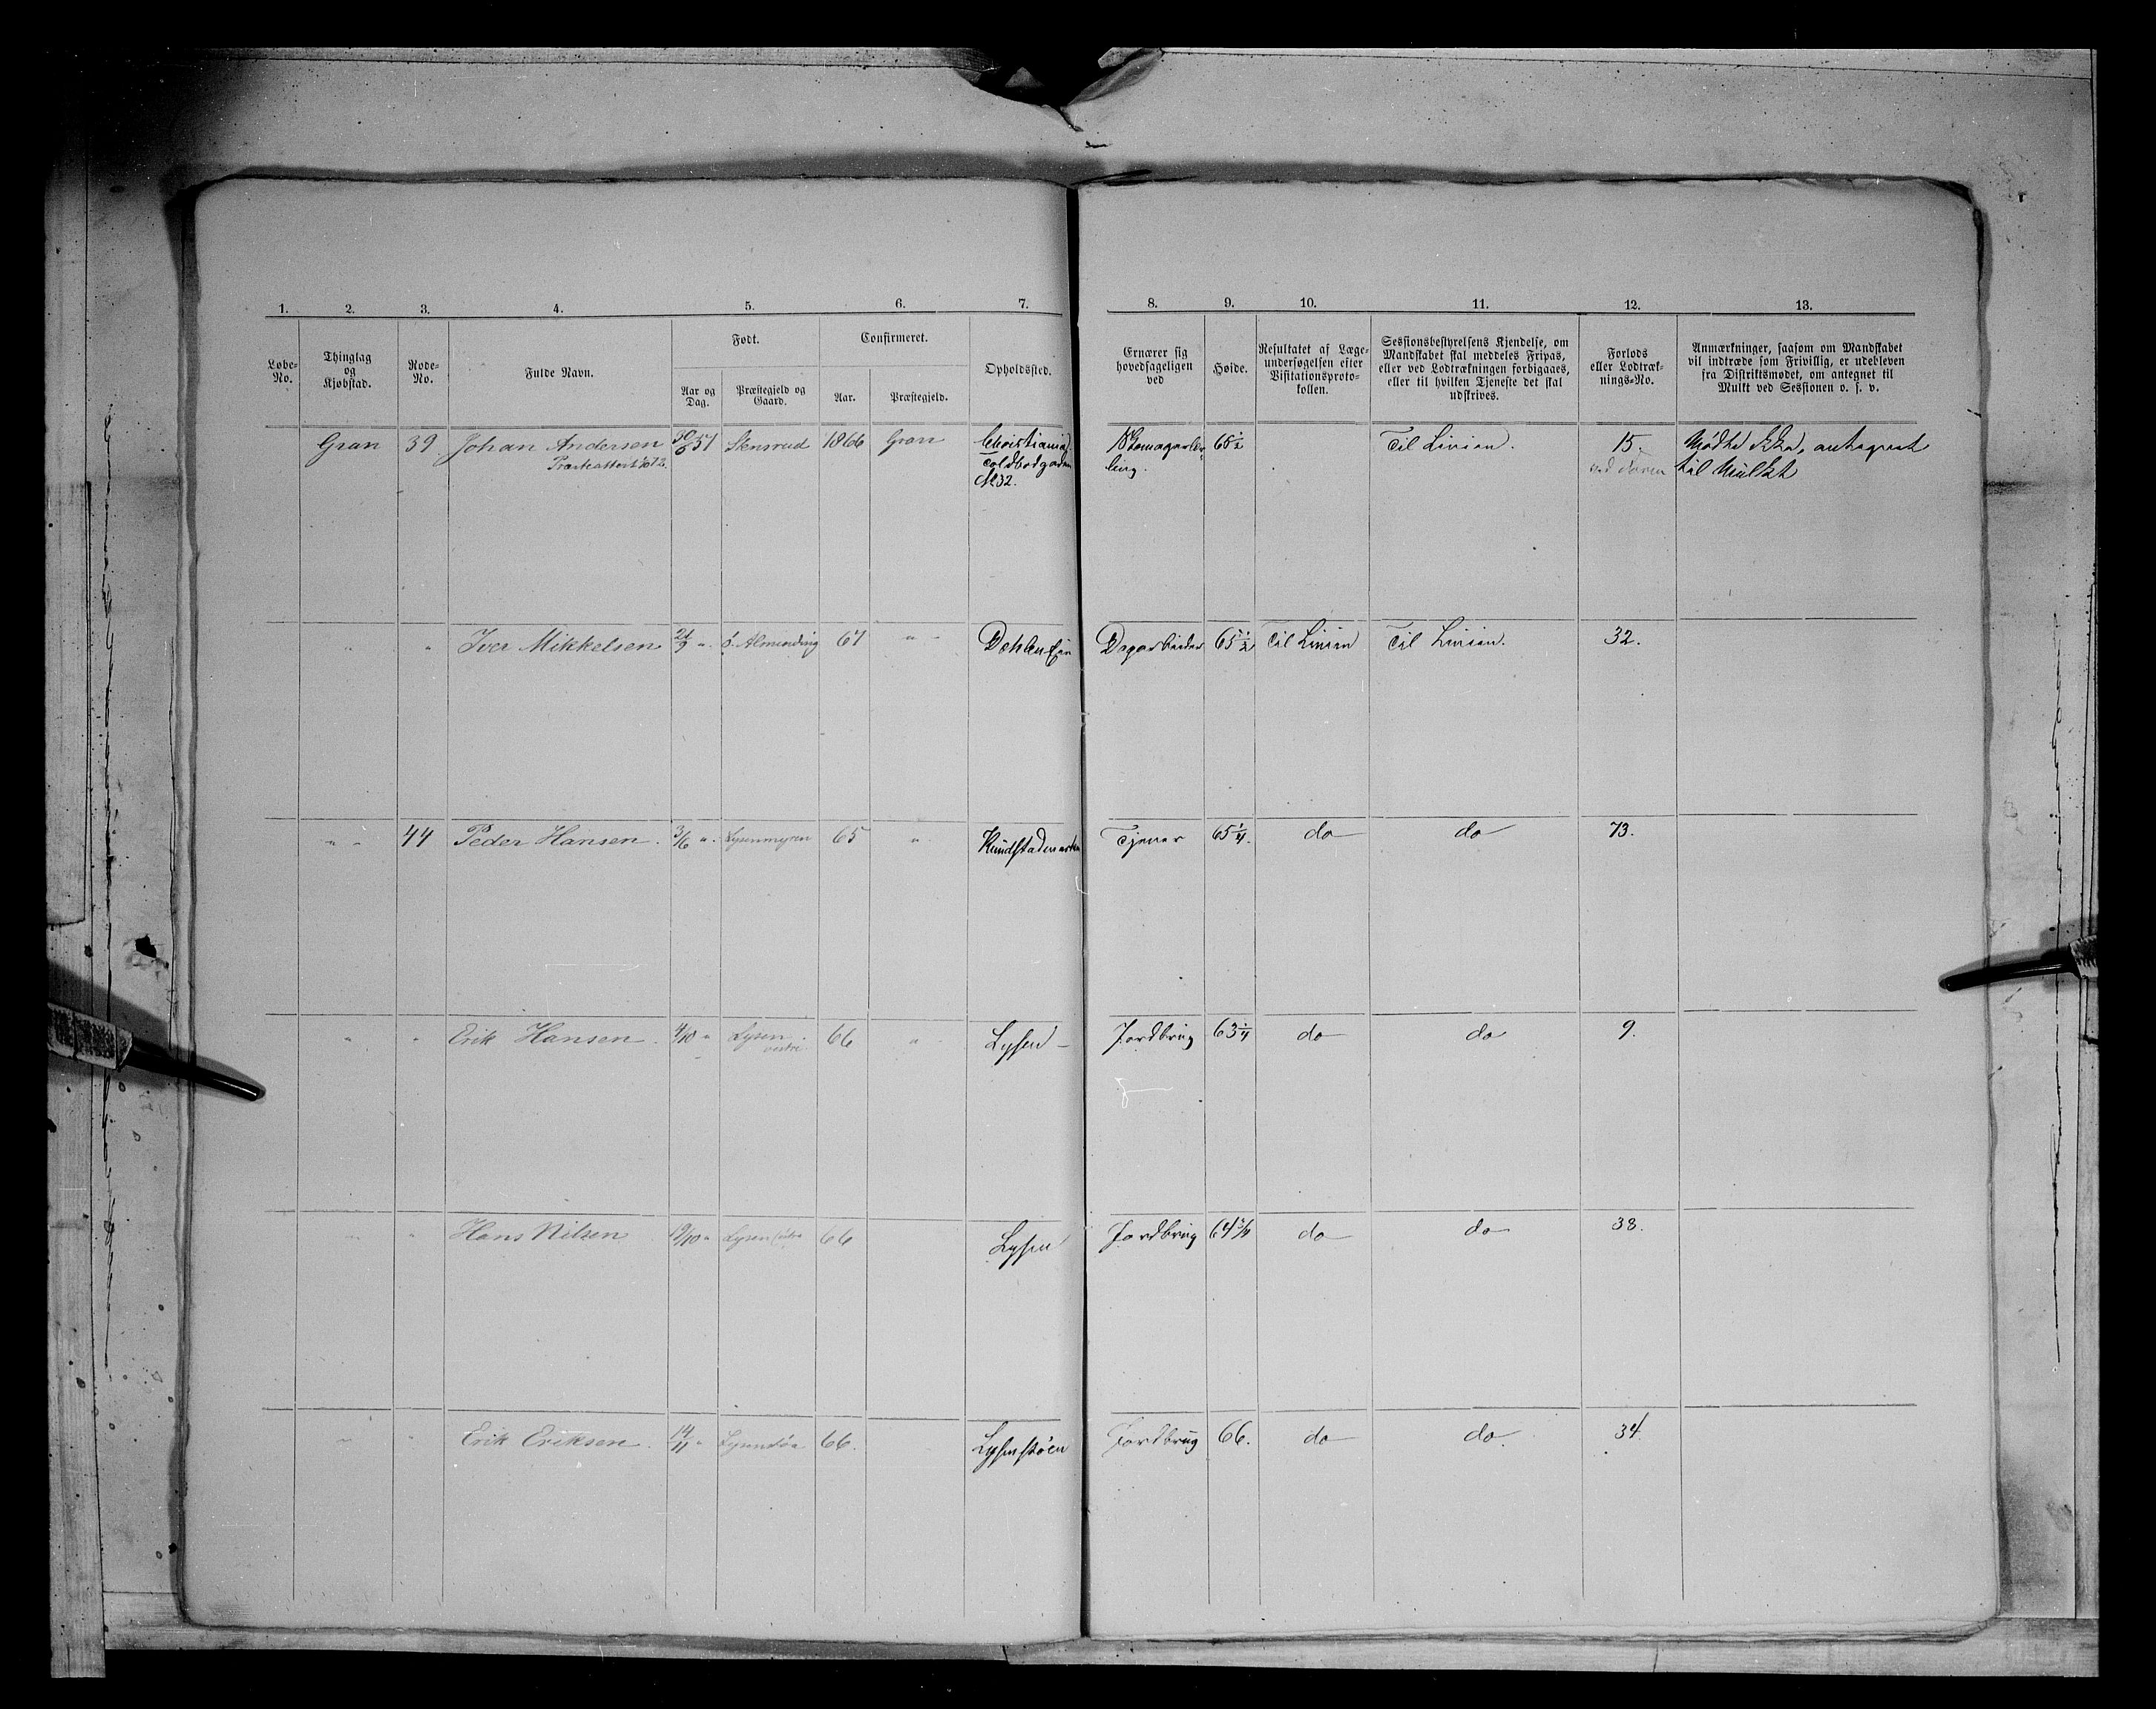 1. 2. 3. 4. 5. 6. 7. 8. 9. 10. 11. 12. 13.
Løbe-No.
Thinglag og Kjøbstad.
Rode-No.
Fulde Navn.
Født.
Aar og Dag.
Præstegjeld og Gaard.
Confirmeret.
Aar.
Præstegjeld.
Opholdssted.
Ernærer sig hovedsageligen ved
Høide.
Resultatet af Læge-undersøgelsen efter Visitationsproto-kollen.
Sessionsbestyrelsens Kjendelse, om Mandskabet skal meddeles Fripas, eller ved Lodtrækningen forbigaaes, eller til hvilken Tjeneste det skal udskrives.
Forlods eller Lodtræk-nings-No.
Anmærkninger, saasom om Mandskabet vil indtræde som Frivillig, er udebleven fra Distriktsmødet, om antegnet til Mulkt ved Sessionen o. s. v.
Gran 39 Johan Andersen 51 Stensrud 1866 Gran Christiania 65 1/2 Til Linien. 15. Mødte ikke, antegnet
Toldbodgaden ling. til Mulkt
No 32.
" " Iver Mikkelsen 21/9 " Ø. Almending 67 " Dahlen Dagarbeider 65 1/2 Til Linien Til Linien. 32.
" 44 Peder Hansen. 3/6 " Lysenmyren 65 " Tjener 65 1/4. do do 73.
" " Erik Hansen. 4/10 " Lysen 66 " Lysen Jordbrug 63 1/4 do do 9.
vestre
" " Hans Nilsen 19/10 " Lysen 66 Lysen Jordbrug 64 3/4 do do 38.
" " Erik Eriksen. 14/11 " 66. Lysenstøen Jordbrug 66. do do. 34.